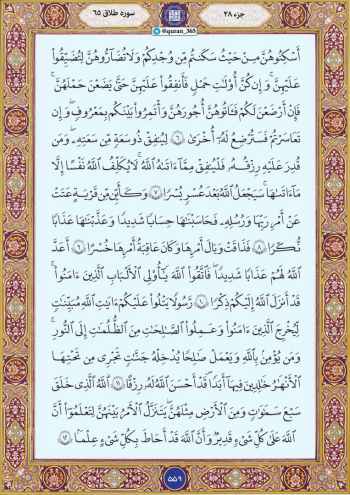 سوره طلاق ۶۵
جزء ۲۸
@quran_365
أَسْكِنُوهُنَّ مِنْ حَيْثُ سَكَنتُم مِّن وُجْدِكُمْ وَلَا تُضَآرُّوهُنَّ لِتُضَيِّقُوا۟
عَلَيْهِنَّ ۚ وَإِن كُنَّ أُو۟لَـٰتِ حَمْلٍ فَأَنفِقُوا۟ عَلَيْهِنَّ حَتَّىٰ يَضَعْنَ حَمْلَهُنَّ ۚ
فَإِنْ أَرْضَعْنَ لَكُمْ فَـَٔاتُوهُنَّ أُجُورَهُنَّ ۖ وَأْتَمِرُوا۟ بَيْنَكُم بِمَعْرُوفٍ ۖ وَإِن
تَعَاسَرْتُمْ فَسَتُرْضِعُ لَهُۥٓ أُخْرَىٰ ﴿٦﴾ لِيُنفِقْ ذُو سَعَةٍ مِّن سَعَتِهِۦ ۖ وَمَن
قُدِرَ عَلَيْهِ رِزْقُهُۥ فَلْيُنفِقْ مِمَّآ ءَاتَىٰهُ ٱللَّهُ ۚ لَا يُكَلِّفُ ٱللَّهُ نَفْسًا إِلَّا
مَآ ءَاتَىٰهَا ۚ سَيَجْعَلُ ٱللَّهُ بَعْدَ عُسْرٍ يُسْرًا ﴿٧﴾ وَكَأَيِّن مِّن قَرْيَةٍ عَتَتْ
عَنْ أَمْرِ رَبِّهَا وَرُسُلِهِۦ فَحَاسَبْنَـٰهَا حِسَابًا شَدِيدًا وَعَذَّبْنَـٰهَا عَذَابًا
نُّكْرًا ﴿٨﴾ فَذَاقَتْ وَبَالَ أَمْرِهَا وَكَانَ عَـٰقِبَةُ أَمْرِهَا خُسْرًا ﴿٩﴾ أَعَدَّ
ٱللَّهُ لَهُمْ عَذَابًا شَدِيدًا ۖ فَٱتَّقُوا۟ ٱللَّهَ يَـٰٓأُو۟لِى ٱلْأَلْبَـٰبِ ٱلَّذِينَ ءَامَنُوا۟ ۚ
قَدْ أَنزَلَ ٱللَّهُ إِلَيْكُمْ ذِكْرًا ﴿١٠﴾ رَّسُولًا يَتْلُوا۟ عَلَيْكُمْ ءَايَـٰتِ ٱللَّهِ مُبَيِّنَـٰتٍ
لِّيُخْرِجَ ٱلَّذِينَ ءَامَنُوا۟ وَعَمِلُوا۟ ٱلصَّـٰلِحَـٰتِ مِنَ ٱلظُّلُمَـٰتِ إِلَى ٱلنُّورِ ۚ
وَمَن يُؤْمِنۢ بِٱللَّهِ وَيَعْمَلْ صَـٰلِحًا يُدْخِلْهُ جَنَّـٰتٍ تَجْرِى مِن تَحْتِهَا
ٱلْأَنْهَـٰرُ خَـٰلِدِينَ فِيهَآ أَبَدًا ۖ قَدْ أَحْسَنَ ٱللَّهُ لَهُۥ رِزْقًا ﴿١١﴾ ٱللَّهُ ٱلَّذِى خَلَقَ
سَبْعَ سَمَـٰوَٰتٍ وَمِنَ ٱلْأَرْضِ مِثْلَهُنَّ يَتَنَزَّلُ ٱلْأَمْرُ بَيْنَهُنَّ لِتَعْلَمُوٓا۟ أَنَّ
ٱللَّهَ عَلَىٰ كُلِّ شَىْءٍ قَدِيرٌ وَأَنَّ ٱللَّهَ قَدْ أَحَاطَ بِكُلِّ شَىْءٍ عِلْمًۢا ﴿١٢﴾
۵۵۹